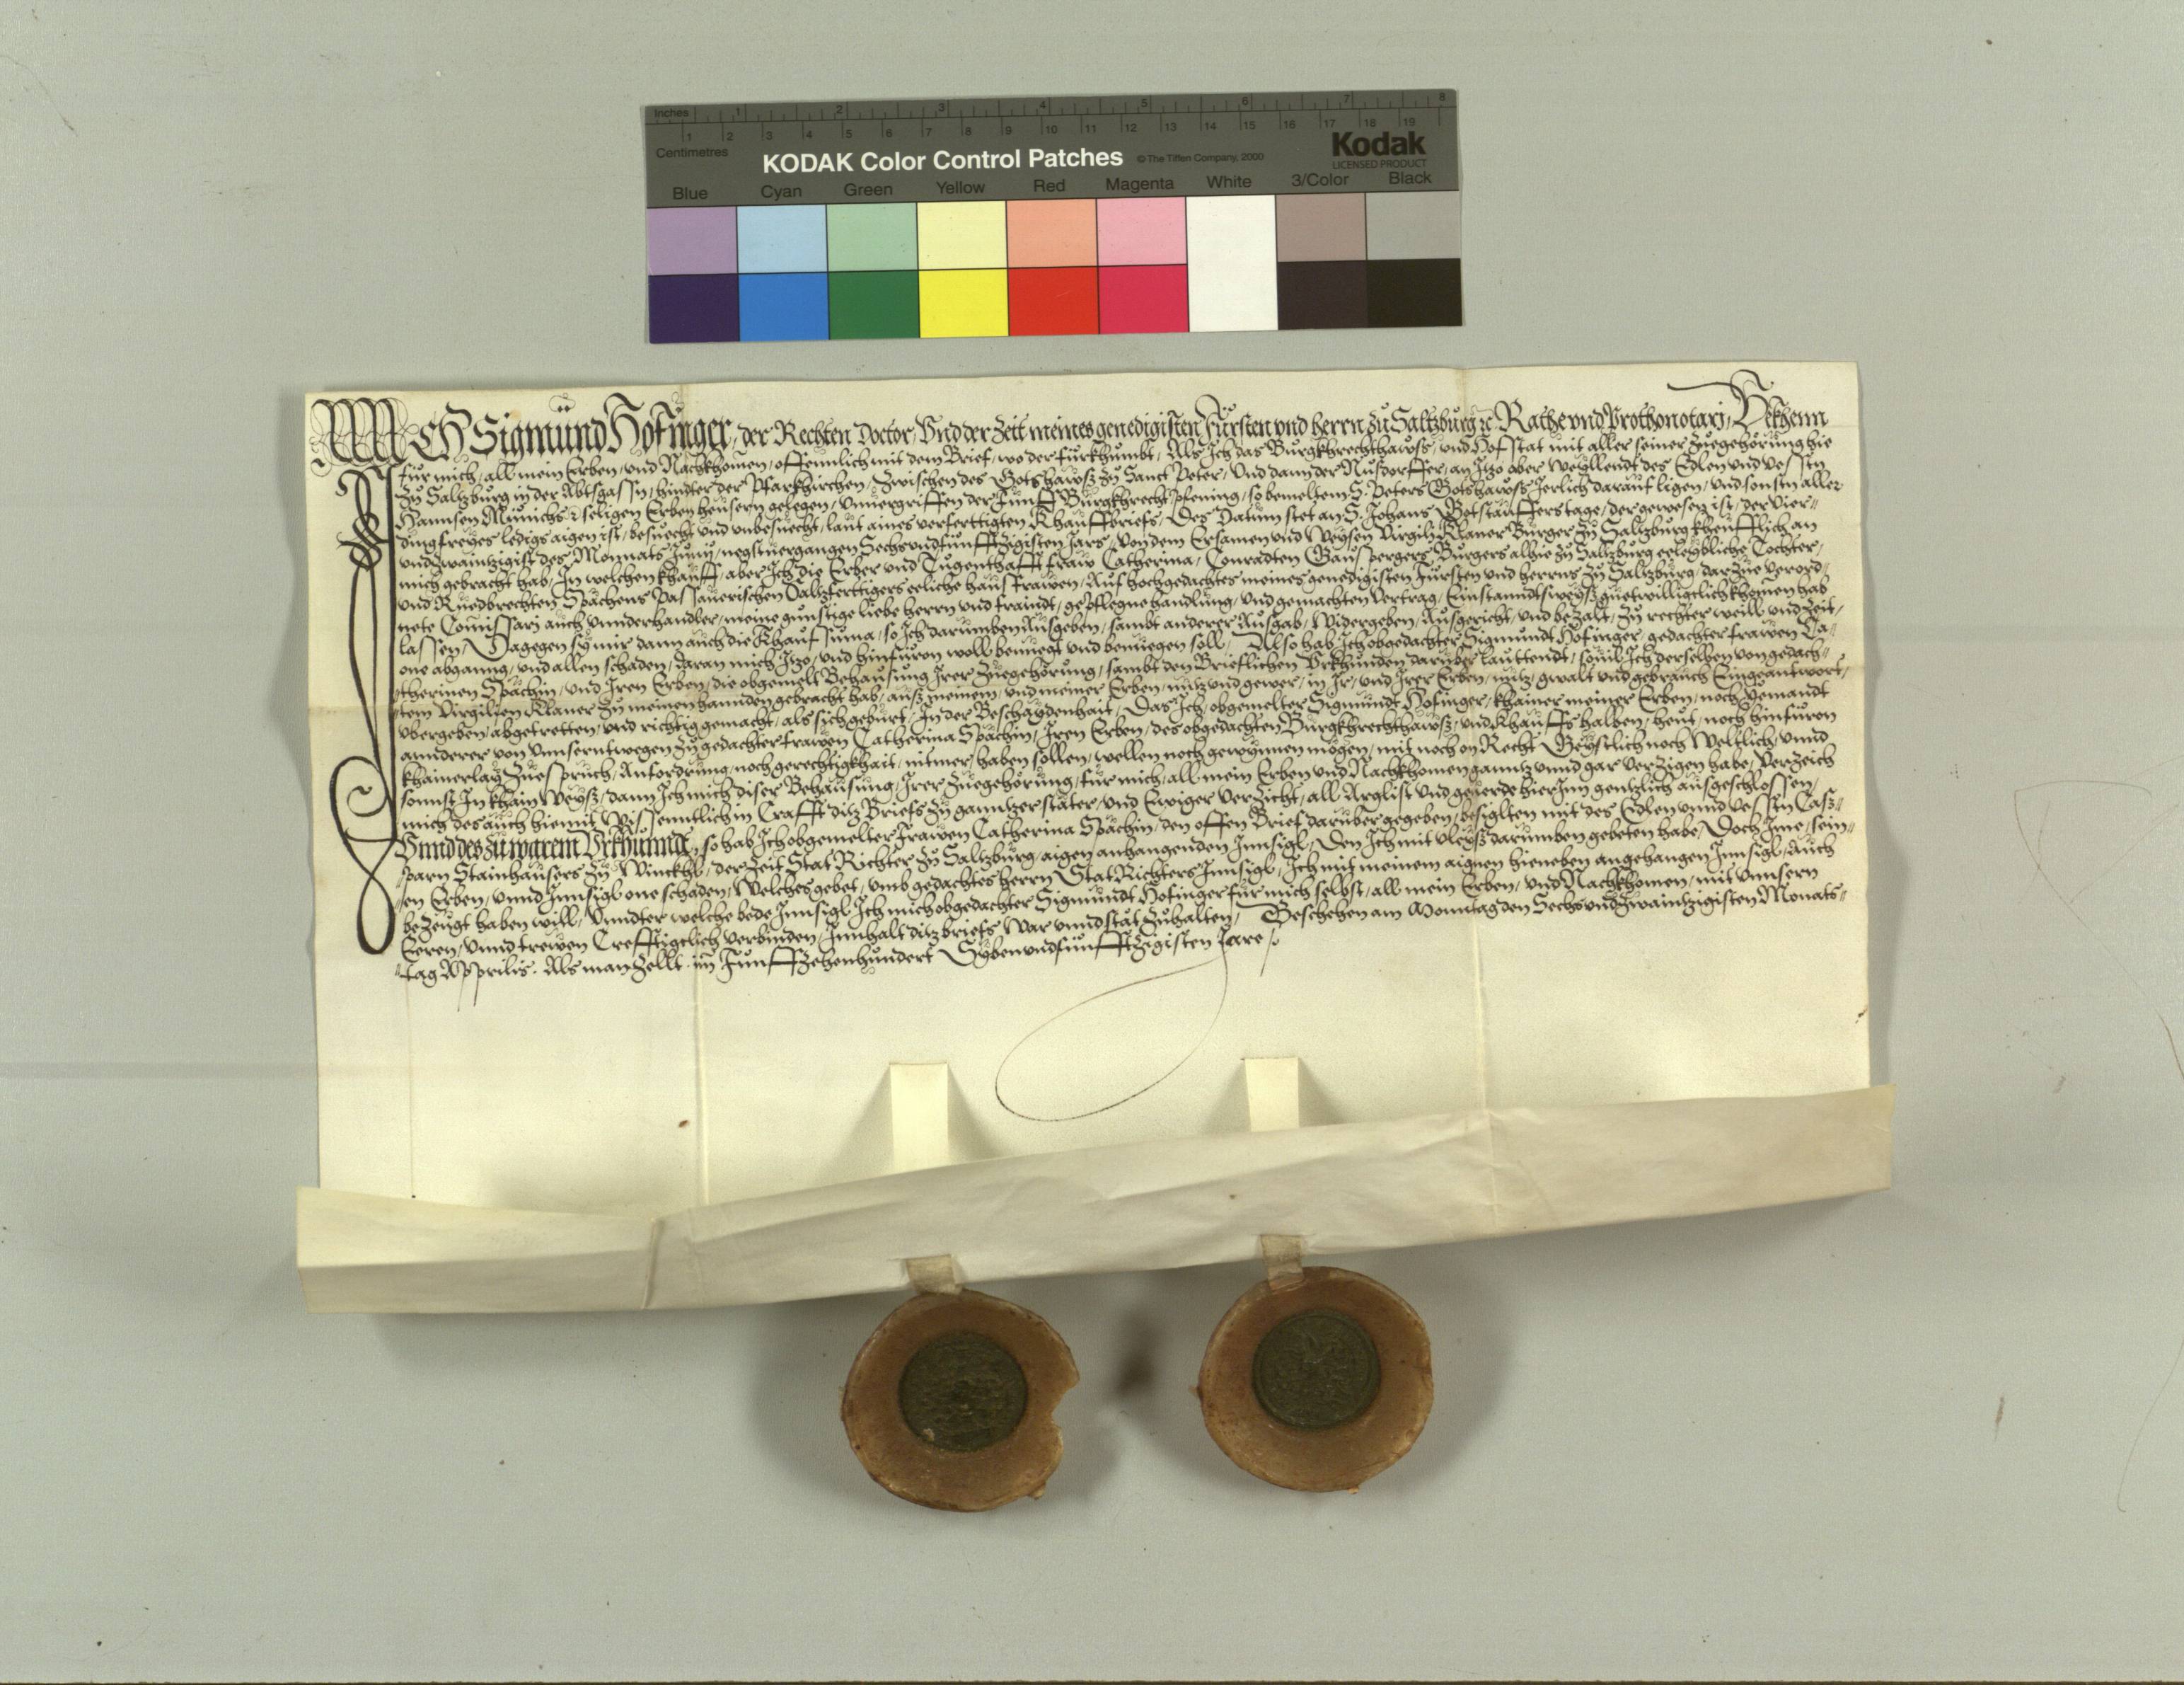 Inches 1 2 3 4 5 6 7 8
1 2 3 4 5 6 7 8 9 10 11 12 13 14 15 16 17 18 19
Centimetres
KODAK Color Control Patches © The Tiffen Company, 2000 Kodak
LICENSED PRODUCT
Blue Cyan Green Yellow Red Magenta White 3/Color Black
ICH Sigmund Höfinger, der Rechten Doctor, Vnd der Zeit meines genedigisten Fürsten vnd herrn zu Saltzburg ꝛc Rathe vnd Prothonotarj, Bekhenn
für mich, all mein Erben, vnd Nachkhomen, offennlich mit dem Brief, wo der fürkhumbt, Als Ich das Burgkhrechthawss, vnd Hofstat mit aller seiner Zuegehörung hie
zu Saltzburg in der Abtsgassn, hindter der Pfarkhirchen, Zwischen des Gotshawss zu Sanct Peter, Vnd dann der Nusdorffer, an Itzo aber Weyllendt des Edlen vnd Vesstn
Hannsen Münichs ꝛc seligen Erben heüsern gelegen, Vnuergriffen der Fünff Burgkhrecht pfening, so bemeltem S. Peters Gotshawss Jerlich darauf ligen, vnd sonstn aller
ding freyes ledigs aigen ist, besuecht vnd vnbesuecht, laut aines verferttigten Khauffbriefs, Des Datum stet an S. Johans Gotstauffers tage, der gewesen ist, der Vier-
vndzwaintzigist des Monnats Junij, negstuergangen Sechsvndfünfftzigisten Jars, Von dem Ersamen vnd Weysen Virgilij Klaner Burger zu Saltzburg kheufflich an
mich gebracht hab, In welchen khauff, aber Ich die Erber vnd Tugenthafft fraw Catherina, Conradten Gauspergers Burgers alhie zu Saltzburg erleybliche Tochter,
vnd Ruedbrechten Spächens Passauerischen Saltzferttigers eeliche hausfrawen, Auf hochgedachtes meines genedigisten Fürsten vnd herrns zu Saltzburg, darzue Verord-
nete Comissarj auch vnnderhandler, meine gunstige liebe herrn vnd fraindt, gepflegne handlung, vnd gemachten Vertrag, Einstanndtsweyss guetwilligtlich khomen hab
lassen, Dagegen sy mir dann auch die Khaufsuma, so Ich darumben Ausgeben, sambt anderer Ausgab, Widergeben, Ausgericht, vnd bezalt, Zu rechter weill vnd Zeit,
one abganng, vnd allen schaden, daran mich Itzo, vnd hinfüron woll benüegt vnd benuegen soll, Also hab Ich obgedachter Sigmundt Höfinger, gedachter frawen Ca-
therinen Spächin, vnd Iren Erben, die obgemelt Behausung Irer Zuegehörung, sambt den Brieflichen Vrkhunden darüber lauttendt, souil Ich derselben von gedach-
tem Virgilien Klaner zu meinen hannden gebracht hab, auss meinem, vnd meiner Erben, nutz vnd gewer, in Ir, vnd Irer Erben, nutz, gwalt vnd gebrauch Eingeantwort,
vbergeben, abgetretten, vnd richtig gemacht, als sich gebürt, In der Beschaydenhait, Das Ich obgemelter Sigmundt Höfinger, khainer meiner Erben, noch Yemandt
annderer von Vnnserntwegen zu gedachter frawen Catherina Spächin, Iren Erben, des obgedachten Burgkhrechthawss, vnd Khauffs halben, heut, noch hinfüron
khainerlay Zuespruch, Anfordrung, noch gerechtigkhait, nitmer, haben sollen, wellen noch gewynnen mögen, mit noch on Recht Geystlich noch Weltlich, vnnd
sonnst In khain Weyss, dann Ich mich diser Behausung, Irer Zuegehörung, für mich, all mein Erben vnd Nachkhomen ganntz vnnd gar Verzigen habe, Verzeich
mich des auch hiemit Wissenntlich in Crafft ditz Briefs zu ganntzer stäter, vnd Ewiger Verzicht, all Arglist vnd geuerde hierInn gentzlich ausgeschlossen,
Vnnd des zu warem Vrkhunnd, so hab Ich obgemelter Frawen Catherina Spächin, den offen Brief darüber gegeben, besiglten mit des Edlen vnnd Vesstn Cass-
parn Stainhausers zu Winckhl, der Zeit Stat Richter zu Saltzburg, aigen anhangenden Innsigl, Den Ich mit vleyss darumben gebeten habe, Doch Ime, sein-
en Erben, vnnd Innsigl one schaden, Welches gebet, vmb gedachtes herrn StatRichters Innsigl, Ich mit meinem aignen hieneben angehangen Innsigl, Auch
bezeugt haben will, Vnndter welche bede Innsigl Ich mich obgedachter Sigmundt Höfinger für mich selbst, all mein Erben, vnd Nachkhomen, mit vnnsern
Eeren, vnnd trewen Crefftigclich verbinden, Innhalt ditz briefs War vnnd stät zuhalten, Beschehen am Monntag den Sechsvndzwaintzigisten Monats-
tag Apprilis. Als man zellt im Funffzehenhundert Sybenvndfünfftzigisten Jare